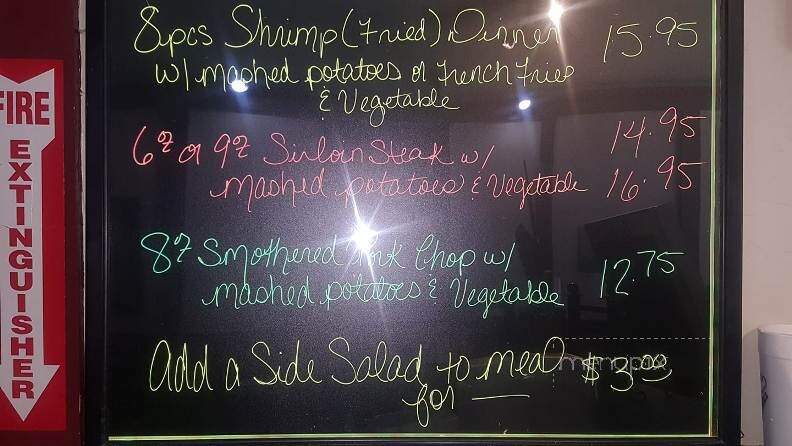 8pcs Shrimp (Fried) Dinner 15.95
w/ mashed potatoes or French Fries
& Vegetable
6oz or 9oz Sirloin Steak w/ 14.95
mashed potatoes & Vegetable 16.95
8oz Smothered Pork Chop w/
mashed potatoes & Vegetable 12.75
Add a Side Salad to meal $3.00
for
FIRE
EXTINGUISHER
menupix